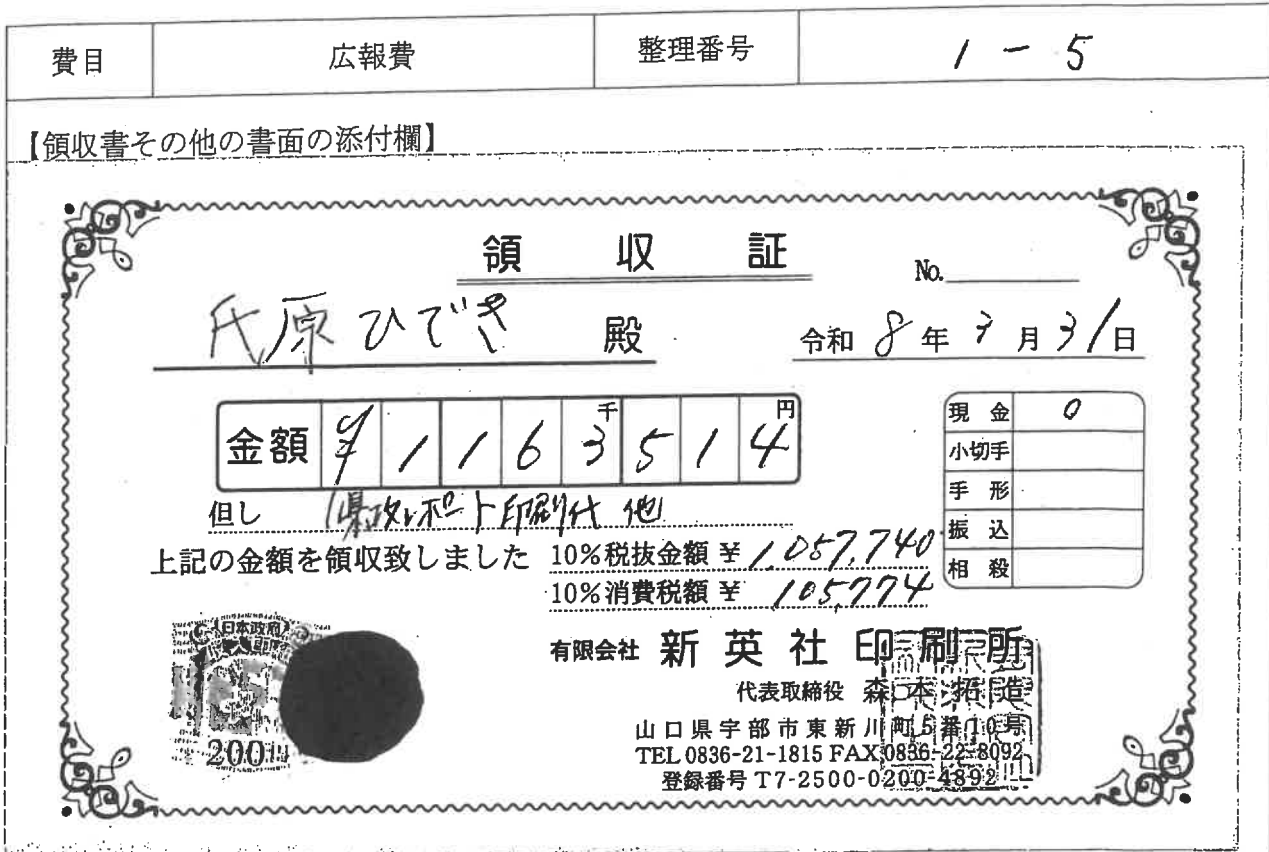 費目 広報費 整理番号 1-5
【領収書その他の書面の添付欄】
領収証
No.
氏原ひでき 殿 令和8年3月31日
金額 ¥1163千514円
現金 0
小切手
手形
振込
相殺
但し 県政レポート印刷代 他
上記の金額を領収致しました 10%税抜金額¥1,057,740
10%消費税額¥105,774
日本政府
200円
有限会社 新英社印刷所
代表取締役 森本拓造
山口県宇部市東新川町5番10号
TEL 0836-21-1815 FAX 0836-22-8092
登録番号 T7-2500-0200-4892